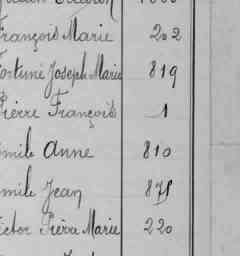 François Marie 202
Fortuné Joseph Marie 819
Pierre François 1
Emile Anne 810
Emile Jean 875
Victor Pierre Marie 220